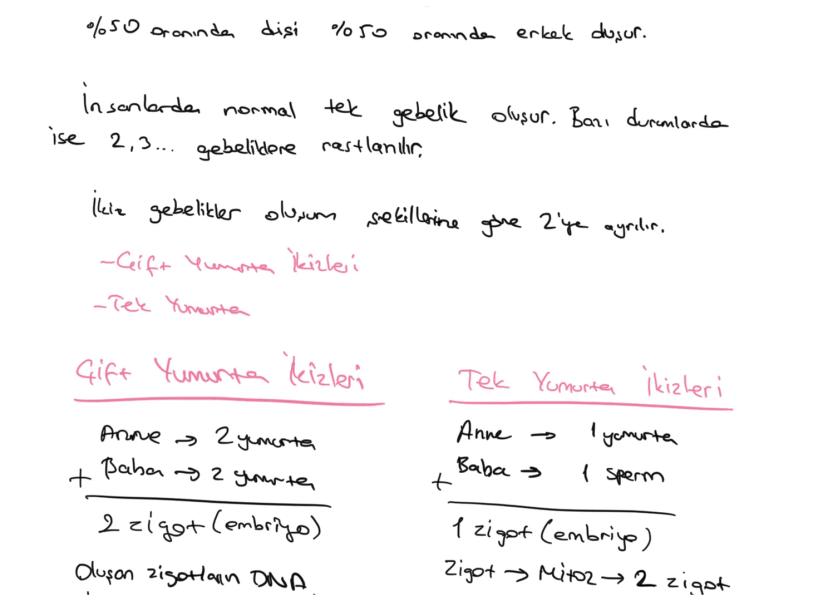 %50 oranında dişi %50 oranında erkek duşur.
İnsanlarda normal tek gebelik oluşur. Bazı durumlarda
ise 2,3... gebeliklere rastlanılır.
İkiz gebelikler oluşum şekillerine göre 2'ye ayrılır.
-Çift Yumurta İkizleri
-Tek Yumurta
Çift Yumurta İkizleri
Anne → 2 yumurta
+ Baba → 2 yumurta
2 zigot (embriyo)
Oluşan zigotların DNA
Tek Yumurta İkizleri
Anne → 1 yumurta
+ Baba → 1 sperm
1 zigot (embriyo)
Zigot → Mitoz → 2 zigot